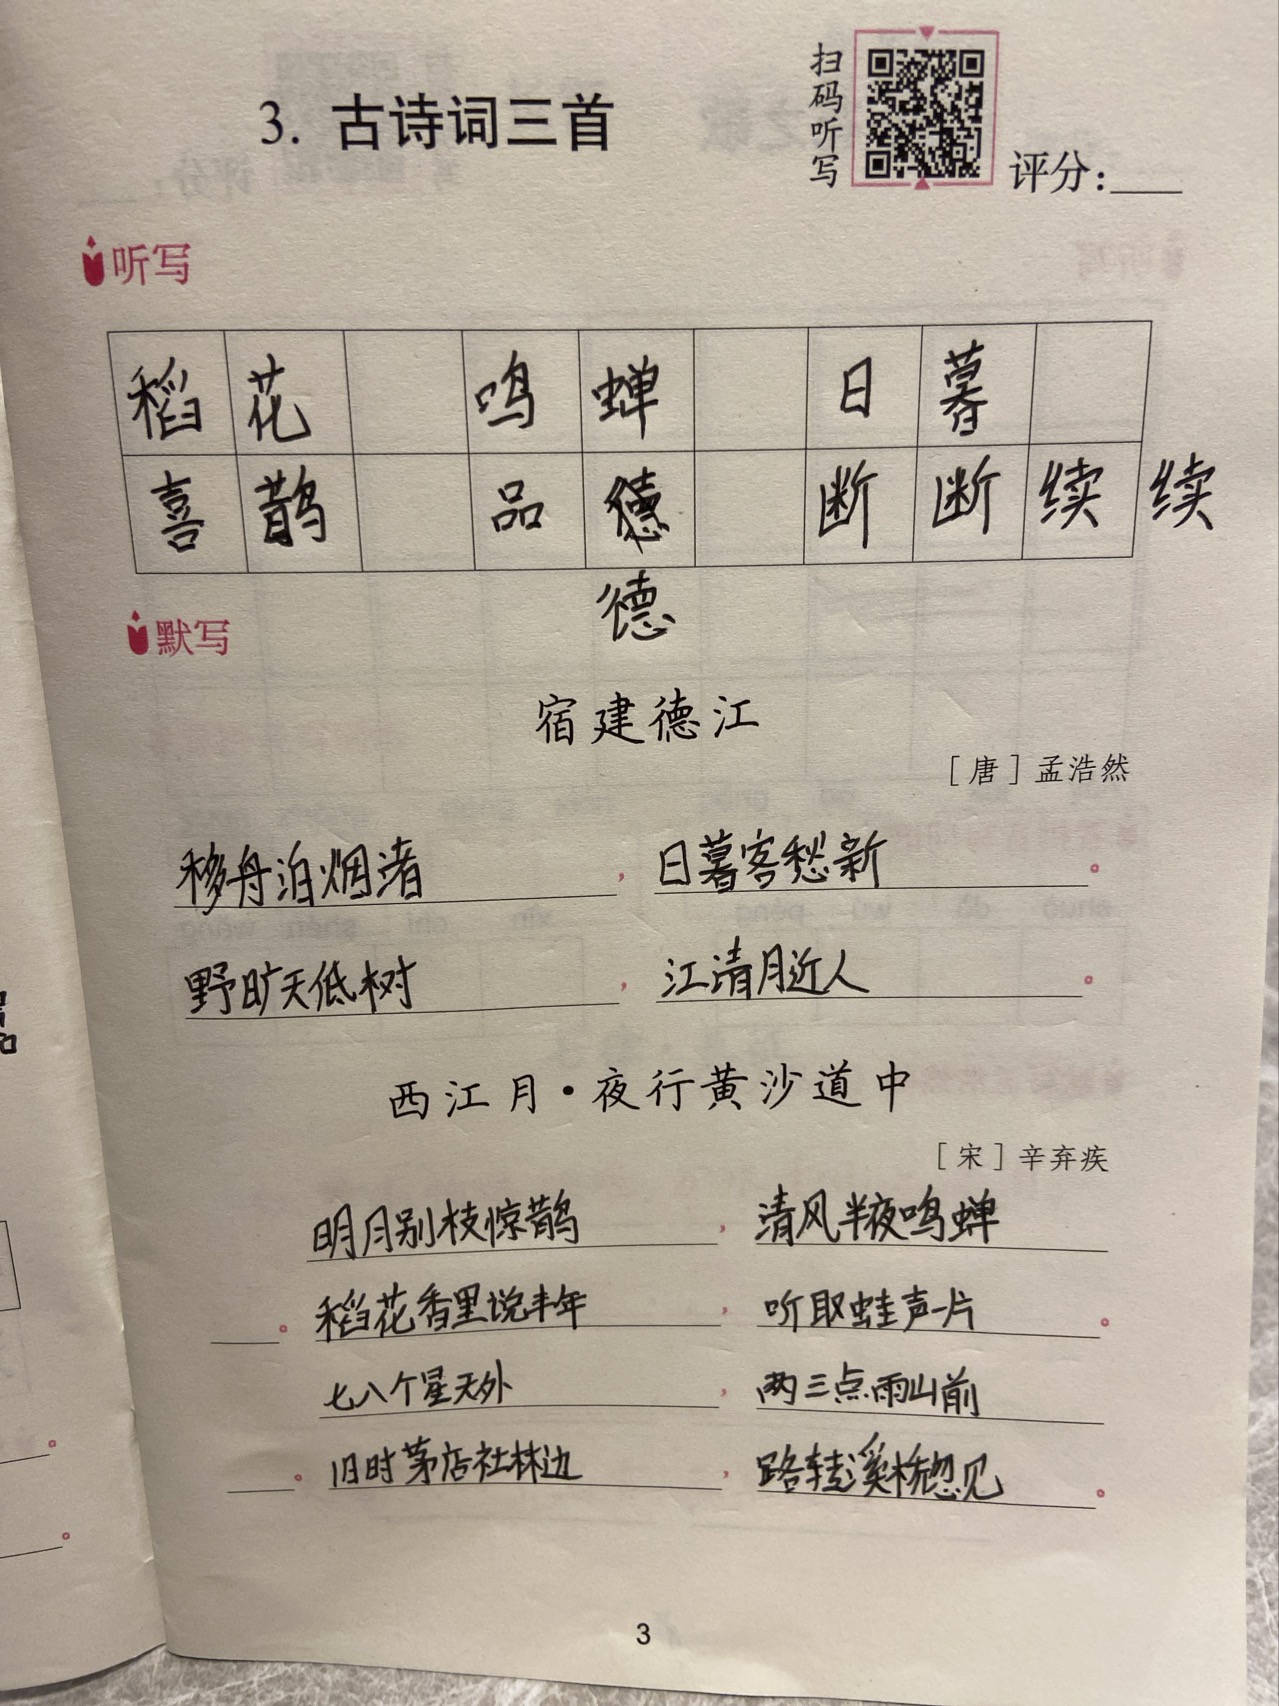 3. 古诗词三首
扫码听写
评分:
听写
稻花 鸣蝉 日暮
喜鹊 品德 断断续续
德
默写
宿建德江
[唐]孟浩然
移舟泊烟渚，日暮客愁新。
野旷天低树，江清月近人。
西江月·夜行黄沙道中
[宋]辛弃疾
明月别枝惊鹊，清风半夜鸣蝉
。稻花香里说丰年，听取蛙声一片。
七八个星天外，两三点雨山前
。旧时茅店社林边，路转溪桥忽见。
3